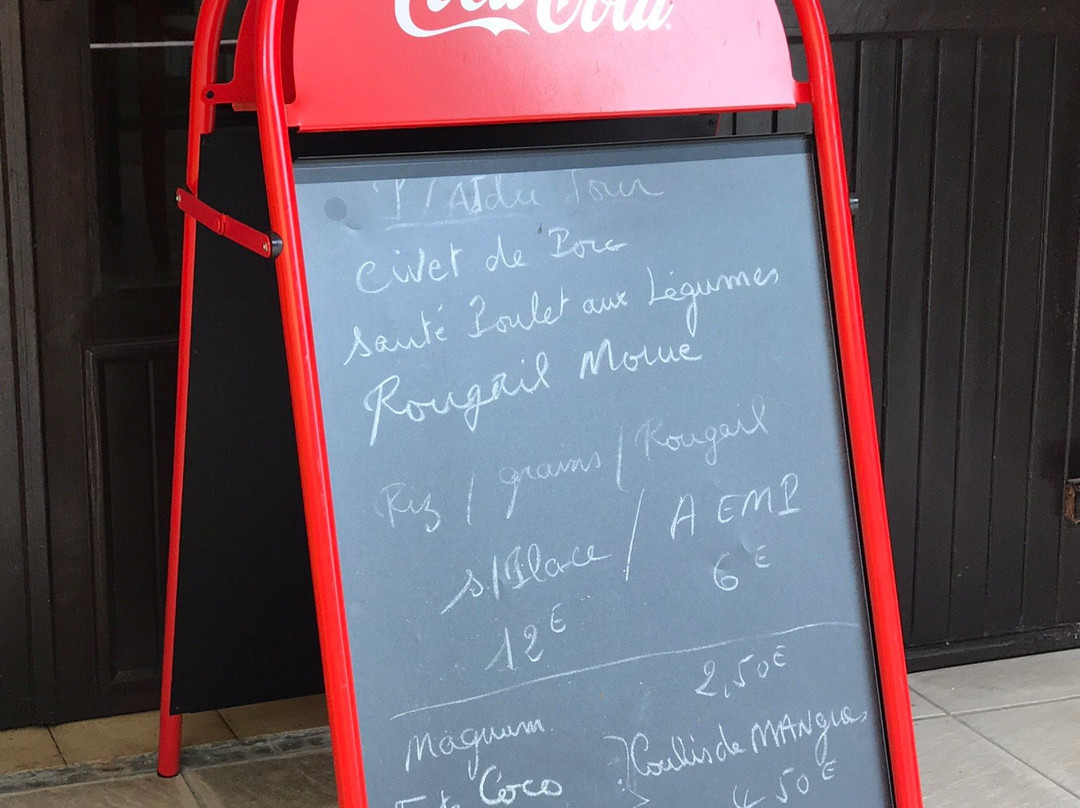 Coca-Cola
P/At du Jour
Civet de Porc
Sauté Poulet aux Légumes
Rougail Morue
Riz / grains / Rougail
s/Place / A EMP
12€ 6€
2,50€
Magnum
Coulis de MANgues
Coco
4,50€